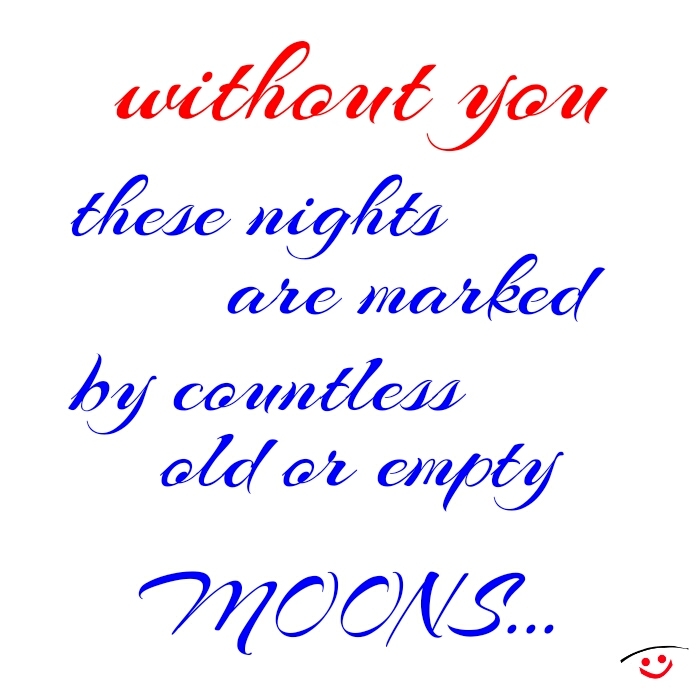 without you
these nights
are marked
by countless
old or empty
MOONS...